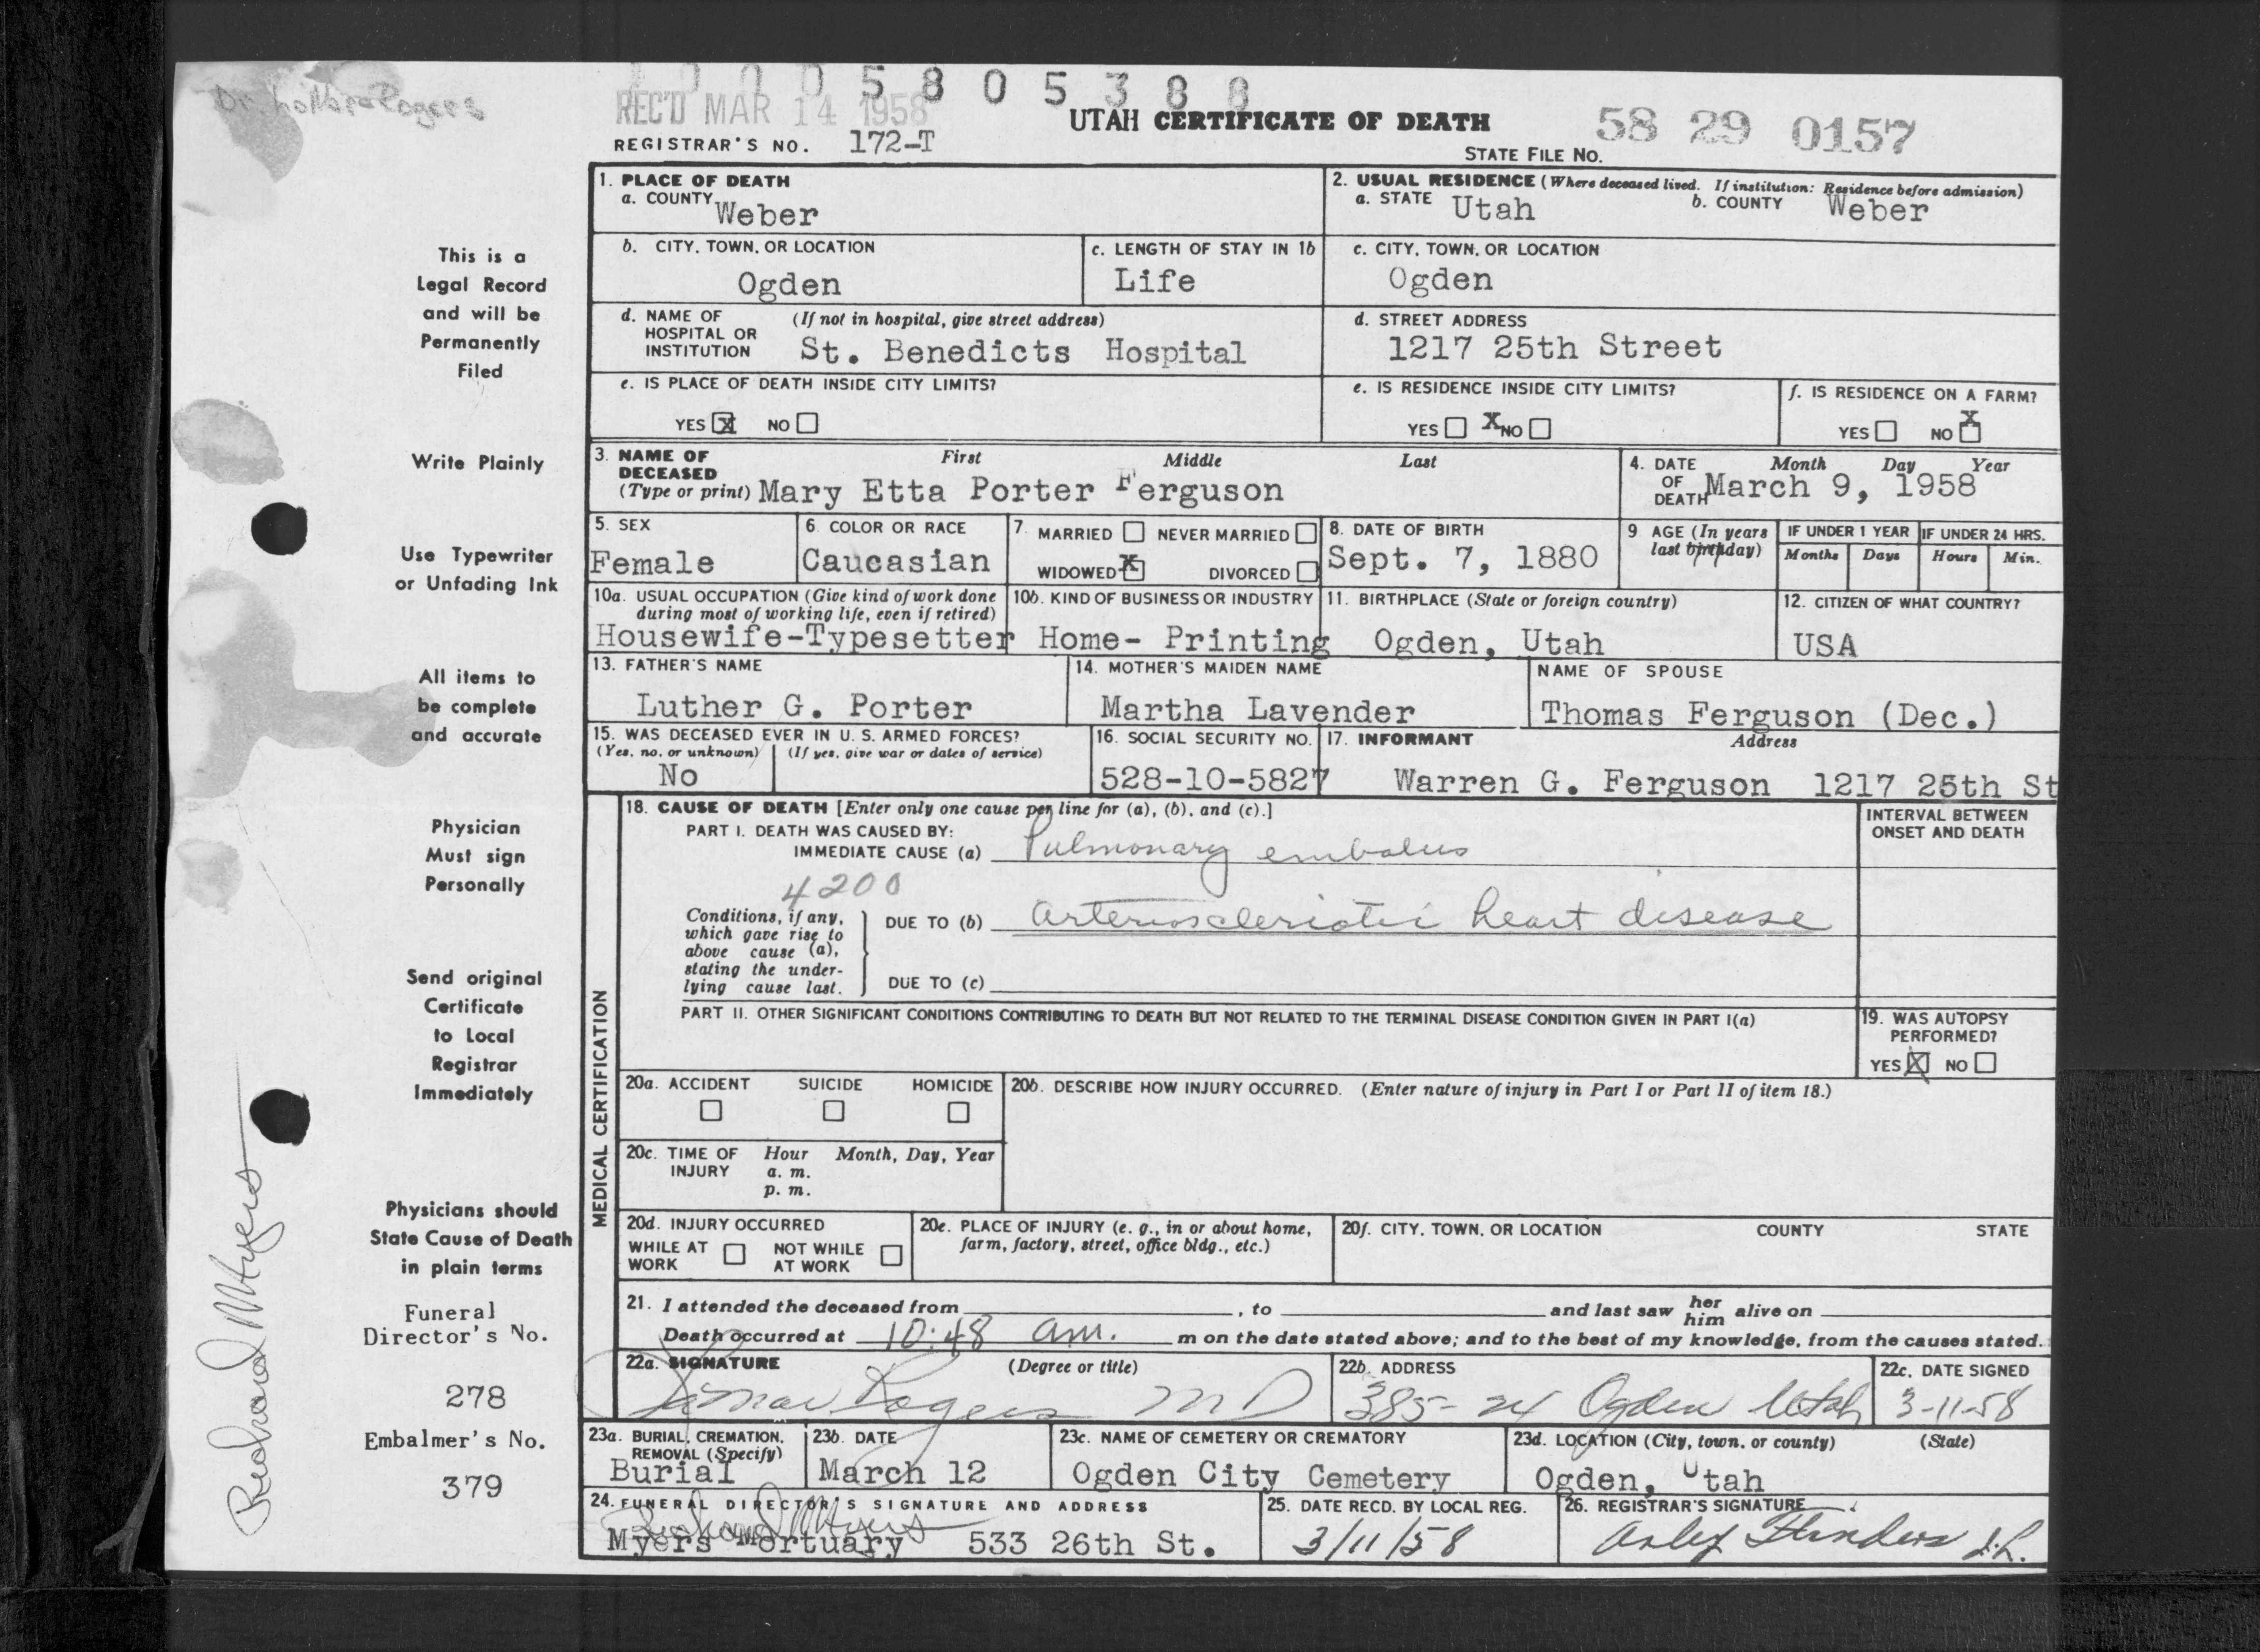 Dr. Rogers
1 0 0 0 5 8 0 5 3 8 8
REC'D MAR 14 1958
UTAH CERTIFICATE OF DEATH
58 29 0157
REGISTRAR'S NO. 172-T
STATE FILE NO.
1. PLACE OF DEATH
a. COUNTY Weber
2. USUAL RESIDENCE (Where deceased lived. If institution: Residence before admission)
a. STATE Utah b. COUNTY Weber
b. CITY, TOWN, OR LOCATION
Ogden
c. LENGTH OF STAY IN 1b
Life
c. CITY, TOWN, OR LOCATION
Ogden
d. NAME OF HOSPITAL OR INSTITUTION (If not in hospital, give street address)
St. Benedicts Hospital
d. STREET ADDRESS
1217 25th Street
e. IS PLACE OF DEATH INSIDE CITY LIMITS?
YES X NO
e. IS RESIDENCE INSIDE CITY LIMITS?
YES X NO
f. IS RESIDENCE ON A FARM?
YES NO X
3. NAME OF DECEASED (Type or print) First Middle Last
Mary Etta Porter Ferguson
4. DATE OF DEATH Month Day Year
March 9, 1958
5. SEX
Female
6. COLOR OR RACE
Caucasian
7. MARRIED NEVER MARRIED
WIDOWED X DIVORCED
8. DATE OF BIRTH
Sept. 7, 1880
9 AGE (In years last birthday)
77
IF UNDER 1 YEAR
Months Days
IF UNDER 24 HRS.
Hours Min.
10a. USUAL OCCUPATION (Give kind of work done during most of working life, even if retired)
Housewife-Typesetter
10b. KIND OF BUSINESS OR INDUSTRY
Home- Printing
11. BIRTHPLACE (State or foreign country)
Ogden, Utah
12. CITIZEN OF WHAT COUNTRY?
USA
13. FATHER'S NAME
Luther G. Porter
14. MOTHER'S MAIDEN NAME
Martha Lavender
NAME OF SPOUSE
Thomas Ferguson (Dec.)
15. WAS DECEASED EVER IN U. S. ARMED FORCES?
(Yes, no, or unknown) (If yes, give war or dates of service)
No
16. SOCIAL SECURITY NO.
528-10-5827
17. INFORMANT Address
Warren G. Ferguson 1217 25th St
MEDICAL CERTIFICATION
18. CAUSE OF DEATH [Enter only one cause per line for (a), (b), and (c).]
INTERVAL BETWEEN ONSET AND DEATH
PART I. DEATH WAS CAUSED BY:
IMMEDIATE CAUSE (a) Pulmonary embolus
4200
Conditions, if any, which gave rise to above cause (a), stating the underlying cause last.
DUE TO (b) Arterioscleriotic heart disease
DUE TO (c)
PART II. OTHER SIGNIFICANT CONDITIONS CONTRIBUTING TO DEATH BUT NOT RELATED TO THE TERMINAL DISEASE CONDITION GIVEN IN PART I(a)
19. WAS AUTOPSY PERFORMED?
YES X NO
20a. ACCIDENT SUICIDE HOMICIDE
20b. DESCRIBE HOW INJURY OCCURRED. (Enter nature of injury in Part I or Part II of item 18.)
20c. TIME OF INJURY Hour Month, Day, Year
a. m.
p. m.
20d. INJURY OCCURRED
WHILE AT WORK NOT WHILE AT WORK
20e. PLACE OF INJURY (e. g., in or about home, farm, factory, street, office bldg., etc.)
20f. CITY, TOWN, OR LOCATION COUNTY STATE
21. I attended the deceased from , to and last saw her him alive on
Death occurred at 10:48 am. m on the date stated above; and to the best of my knowledge, from the causes stated.
22a. SIGNATURE (Degree or title)
Rogers MD
22b. ADDRESS
385-24 Ogden Utah
22c. DATE SIGNED
3-11-58
23a. BURIAL, CREMATION, REMOVAL (Specify)
Burial
23b. DATE
March 12
23c. NAME OF CEMETERY OR CREMATORY
Ogden City Cemetery
23d. LOCATION (City, town, or county) (State)
Ogden, Utah
24. FUNERAL DIRECTOR'S SIGNATURE AND ADDRESS
Richard Myers
Myers Mortuary 533 26th St.
25. DATE RECD. BY LOCAL REG.
3/11/58
26. REGISTRAR'S SIGNATURE
This is a
Legal Record
and will be
Permanently
Filed
Write Plainly
Use Typewriter
or Unfading Ink
All items to
be complete
and accurate
Physician
Must sign
Personally
Send original
Certificate
to Local
Registrar
Immediately
Physicians should
State Cause of Death
in plain terms
Funeral
Director's No.
278
Embalmer's No.
379
Richard Myers